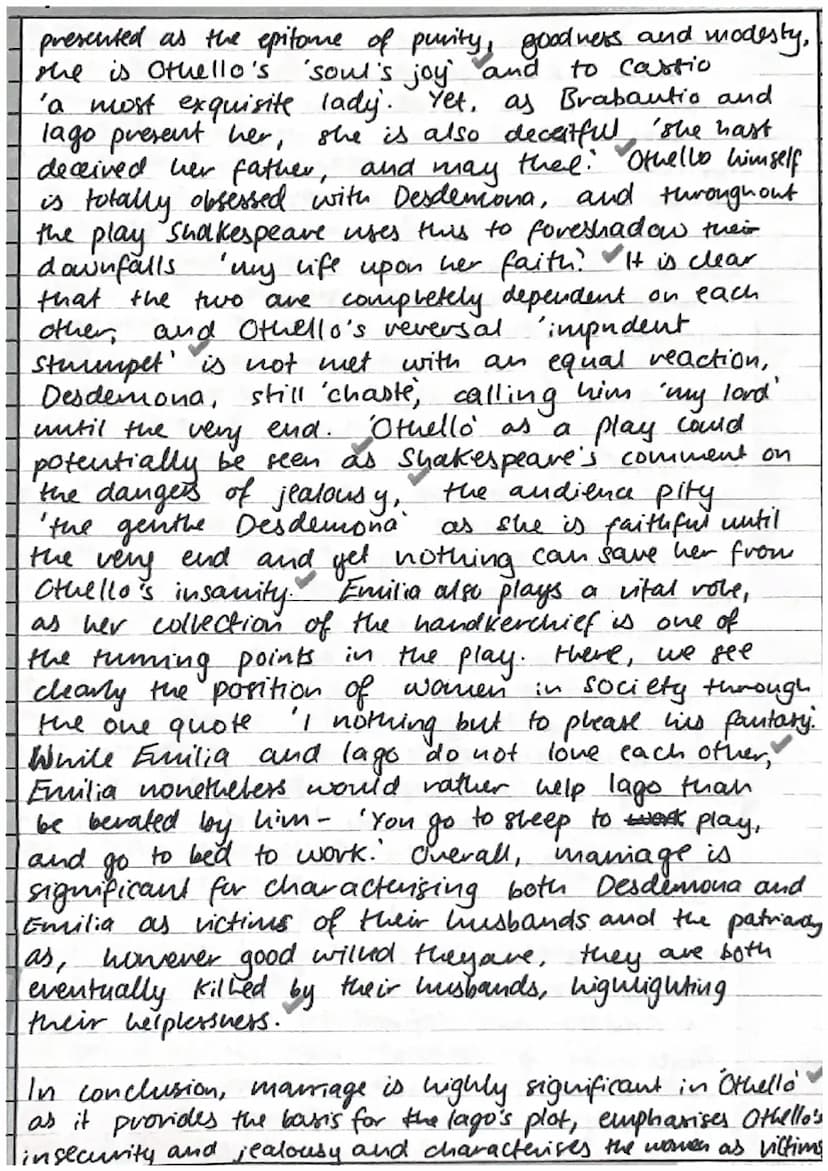 presented as the epitome of purity, goodness and modesty,
she is Othello's 'soul's joy' and to Cassio
'a most exquisite lady'. Yet, as Brabantio and
Iago present her, she is also deceitful 'she hast
deceived her father, and may thee.' Othello himself
is totally obsessed with Desdemona, and throughout
the play Shakespeare uses this to foreshadow their
downfalls 'my life upon her faith.' It is clear
that the two are completely dependent on each
other, and Othello's reversal 'impudent
strumpet' is not met with an equal reaction,
Desdemona, still 'chaste', calling him 'my lord'
until the very end. 'Othello' as a play could
potentially be seen as Shakespeare's comment on
the dangers of jealousy, the audience pity
'the gentle Desdemona' as she is faithful until
the very end and yet nothing can save her from
Othello's insanity. Emilia also plays a vital role,
as her collection of the handkerchief is one of
the turning points in the play. Here, we see
clearly the position of women in society through
the one quote 'I nothing but to please his fantasy.'
While Emilia and Iago do not love each other,
Emilia nonetheless would rather help Iago than
be berated by him - 'You go to sleep to play,
and go to bed to work.' Overall, marriage is
significant for characterising both Desdemona and
Emilia as victims of their husbands and the patriarchy
as, however good willed they are, they are both
eventually killed by their husbands, highlighting
their helplessness.
In conclusion, marriage is highly significant in 'Othello'
as it provides the basis for the Iago's plot, emphasises Othello's
insecurity and jealousy and characterises the women as victims